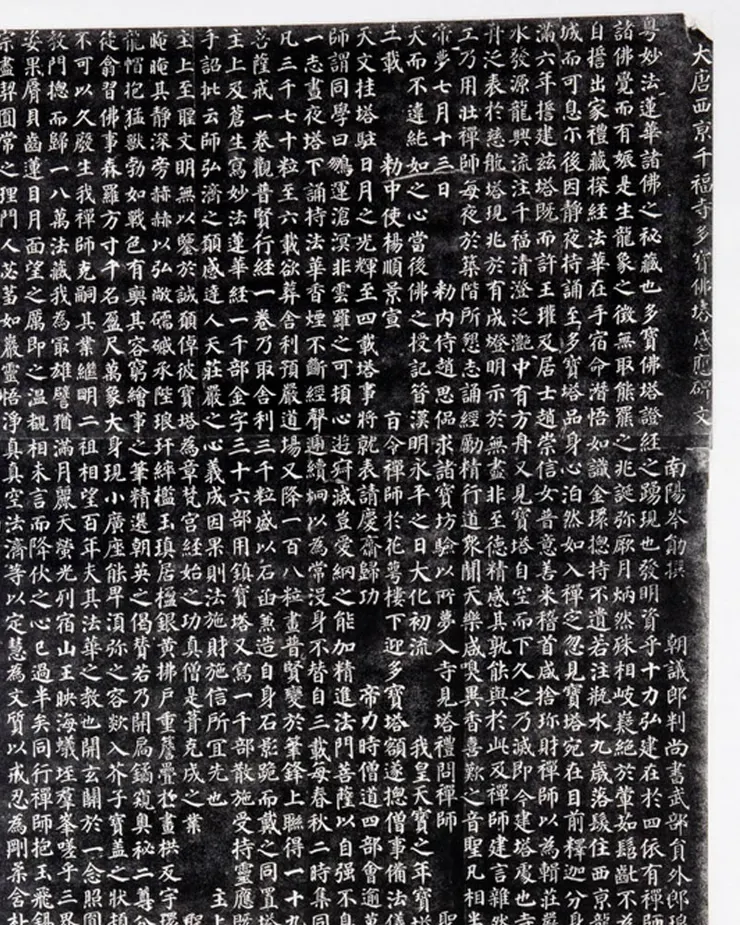 大唐西京千福寺多寶佛塔感應碑文
南陽岑勛撰　朝議郎判尚書武部員外郎琅
粵妙法蓮華諸佛之祕藏也多寶佛塔證經之踴現也發明資乎十力弘建在於四依有禪師
諸佛覺而有娠是生龍象之徵無取熊羆之兆誕弥厥月炳然殊相岐嶷絕於葷茹髫齔不
自誓出家禮藏探經法華在手宿命潛悟如識金環揔持不遺若注瓶水九歲落髮住西京龍
城而可息尒後因靜夜持誦至多寶塔品身心泊然如入禪定忽見寶塔宛在目前釋迦分身
滿六年誓建茲塔既而許王瓘及居士趙崇信女普意善來稽首咸捨珎財禪師以為輯莊嚴
水發源龍興流注千福清澄泛灩中有方舟又見寶塔自空而下久之乃滅即今建塔處也寺
舟泛表於慈航塔現兆於有成燈明示於無盡非至德精感其孰能與於此及禪師建言雜然
工乃用壯禪師每夜於築階所懇志誦經勵精行道衆聞天樂咸嗅異香喜歎之音聖凡相半
帝夢七月十三日　勑內侍趙思偘求諸寶坊驗以所夢入寺見塔禮問禪師　聖
天而不違純如之心當後佛之授記昔漢明永平之日大化初流　我皇天寶之年寶塔
土載　勑中使楊順景宣　旨令禪師於花萼樓下迎多寶塔額遂揔僧事備法儀
天文挂塔駐日月之光輝至四載塔事將就表請慶齋歸功　帝力時僧道四部會逾萬
師謂同學曰鵬運滄溟非雲羅之可頓心遊寂滅豈愛網之能加精進法門菩薩以自强不息
一志晝夜塔下誦持法華香煙不斷經聲遞續炯以為常沒身不替自三載每春秋二時集同
凡三千七十粒至六載欲葬舍利預嚴道場又降一百八粒畫普賢變於筆鋒上聯得一十九
菩薩戒一卷觀普賢行經一卷乃取舍利三千粒盛以石函兼造自身石影跪而戴之同置塔
主上及蒼生寫妙法蓮華經一千部金字三十六部用鎮寶塔又寫一千部散施受持靈應既
手詔批云師弘濟之願感達人天莊嚴之心義成因果則法施財施信所宜先也　主上
主上至聖文明無以鑒於誠願倬彼寶塔為章梵宮經始之功真僧是葺克成之業　聖
晻晻其靜深旁赫赫以弘敞礝磩承陛琅玕綷檻玉瑱居楹銀黃拂戶重簷疊於畫栱反宇環
龍帽抱猛獸勃如戰色有奭其容窮繪事之筆精選朝英之偈贊若乃開扃鐍窺奧祕二尊分
徒俞習佛事森羅方寸千名盈尺萬象大身現小廣座能卑須弥之容欻入芥子寶盖之狀頓
不可以久廢生我禪師克嗣其業繼明二祖相望百年夫其法華之教也開玄關於一念照圓
教門揔而歸一八萬法藏我為㝡雄譬猶滿月麗天螢光列宿山王映海蟻垤羣峯嗟乎三界
姿果脣貝齒蓮目月面望之厲即之溫覩相未言而降伏之心已過半矣同行禪師抱玉飛錫
宗盡契圓常之理門人苾蒭如巖靈悟淨真真空法濟等以定慧為文質以戒忍為剛柔含朴